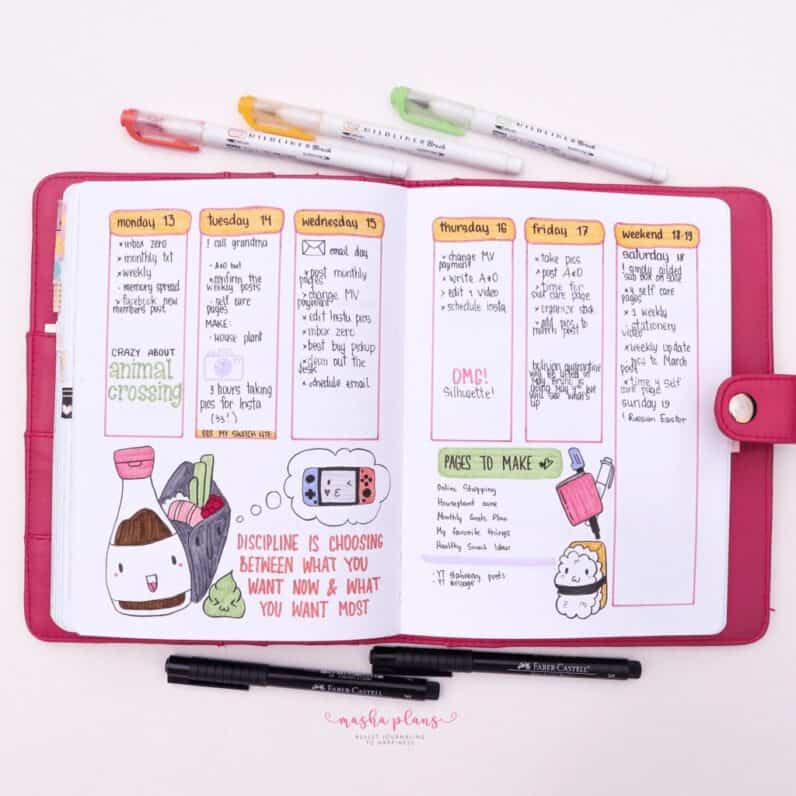 MILDLINER Brush
MILDLINER Brush
MILDLINER Brush
monday 13
× inbox zero
× monthly txt
× weekly
- memory spread
> facebook new
members post
CRAZY ABOUT
animal
crossing
tuesday 14
! call grandma
× confirm the
weekly posts
- self care
pages
MAKE:
- house plant
3 hours taking
pics for Insta
GOT MY SWITCH LITE
wednesday 15
email day
× post monthly
pages
> change MV
payment
× edit Insta pics
× inbox zero
× best buy pickup
× clean out the
desk
× schedule email
thursday 16
× change MV
payment
× write A×O
> edit 1 video
× schedule insta
OMG!
Silhuette!
friday 17
× take pics
× post A×O
× time for
self care page
× organize
× add pics to
march post
weekend 18-19
saturday 18
× 4 self care
pages
× 3 weekly
- stationery
video
× weekly update
× pics to March
posts
× time 4 self
care page
sunday 19
! Russian Easter
DISCIPLINE IS CHOOSING
BETWEEN WHAT YOU
WANT NOW & WHAT
YOU WANT MOST
PAGES TO MAKE
Online Shopping
Houseplant care
Monthly Goals Plan
My favorite things
Healthy Snack Ideas
- YT stationery posts
- YT message
FABER-CASTELL
FABER-CASTELL
masha plans
BULLET JOURNALING
TO HAPPINESS